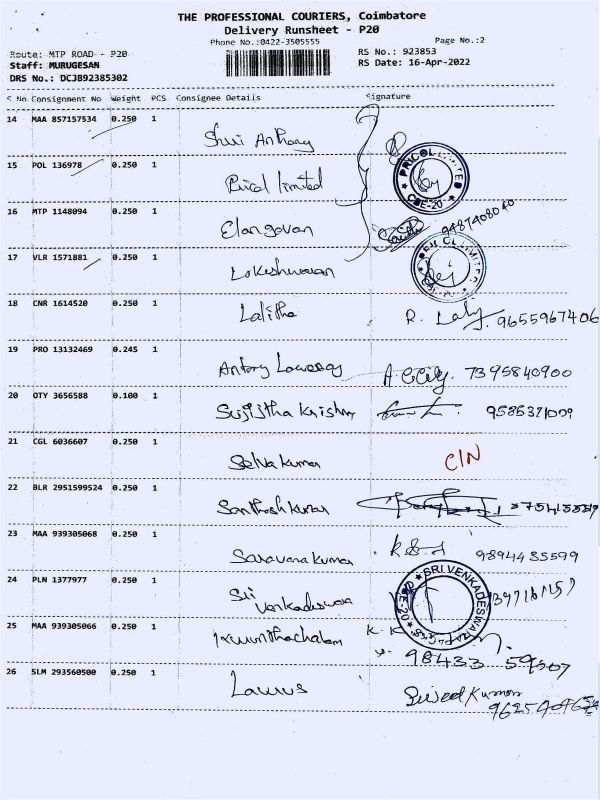 THE PROFESSIONAL COURIERS, Coimbatore
Delivery Runsheet - P20
Phone No.:0422-3505555
Page No.:2
Route: MTP ROAD - P20
RS No.: 923853
Staff: MURUGESAN
RS Date: 16-Apr-2022
DRS No.: DCJB92385302
S No Consignment No Weight PCS Consignee Details Signature
14 MAA 857157534 0.250 1
Shri Anthony
15 POL 136978 0.250 1
Prical limited
PRICOL LIMITED
CBE-20
16 MTP 1148094 0.250 1
Elangovan
9487408040
17 VLR 1571881 0.250 1
Lokeshwaran
18 CNR 1614520 0.250 1
Lalitha
R. Laly 9655967406
19 PRO 13132469 0.245 1
Antony
7395840900
20 OTY 3656588 0.100 1
Sujijtha Krishna
21 CGL 6036607 0.250 1
Selva Kumar
C/N
22 BLR 2951599524 0.250 1
Santhosh Kumar
23 MAA 939305068 0.250 1
Saravana Kumar
24 PLN 1377977 0.250 1
Sri
SRI VENKADESWARA
25 MAA 939305066 0.250 1
98433 59507
26 SLM 293560500 0.250 1